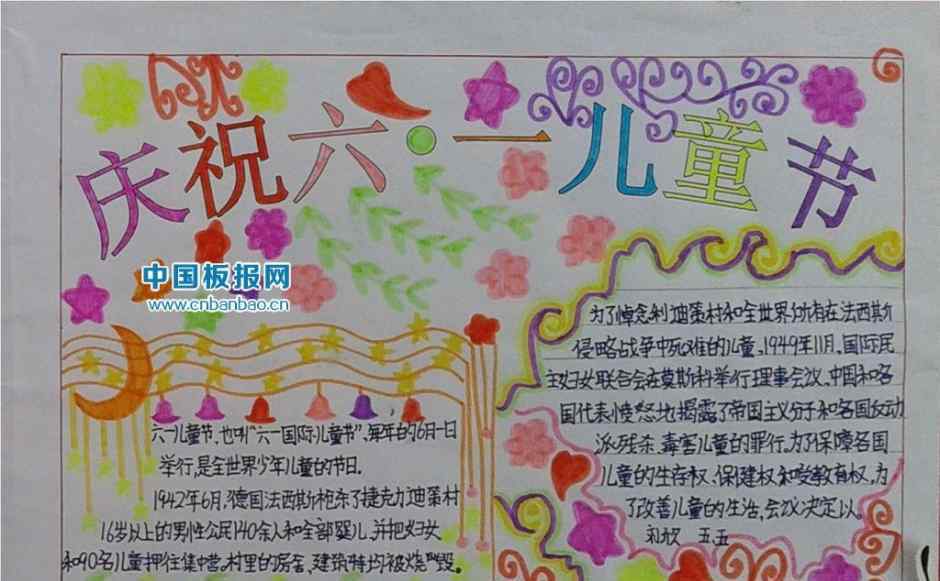 庆祝六·一儿童节
中国板报网
www.cnbanbao.cn
六一儿童节,也叫"六一国际儿童节",每年的6月一日
举行,是全世界少年儿童的节日。
1942年6月,德国法西斯枪杀了捷克力迪策村
16岁以上的男性公民140余人和全部婴儿,并把妇女
和90名儿童押往集中营。村里的房舍、建筑特均被烧毁。
为了悼念利迪策村和全世界所有在法西斯
侵略战争中死难的儿童。1949年11月,国际民
主妇女联合会在莫斯科举行理事会议、中国和各
国代表愤怒地揭露了帝国主义分子和各国反动
派残杀、毒害儿童的罪行。为了保障各国
儿童的生存权、保健权和受教育权,为
了改善儿童的生活,会议决定以。